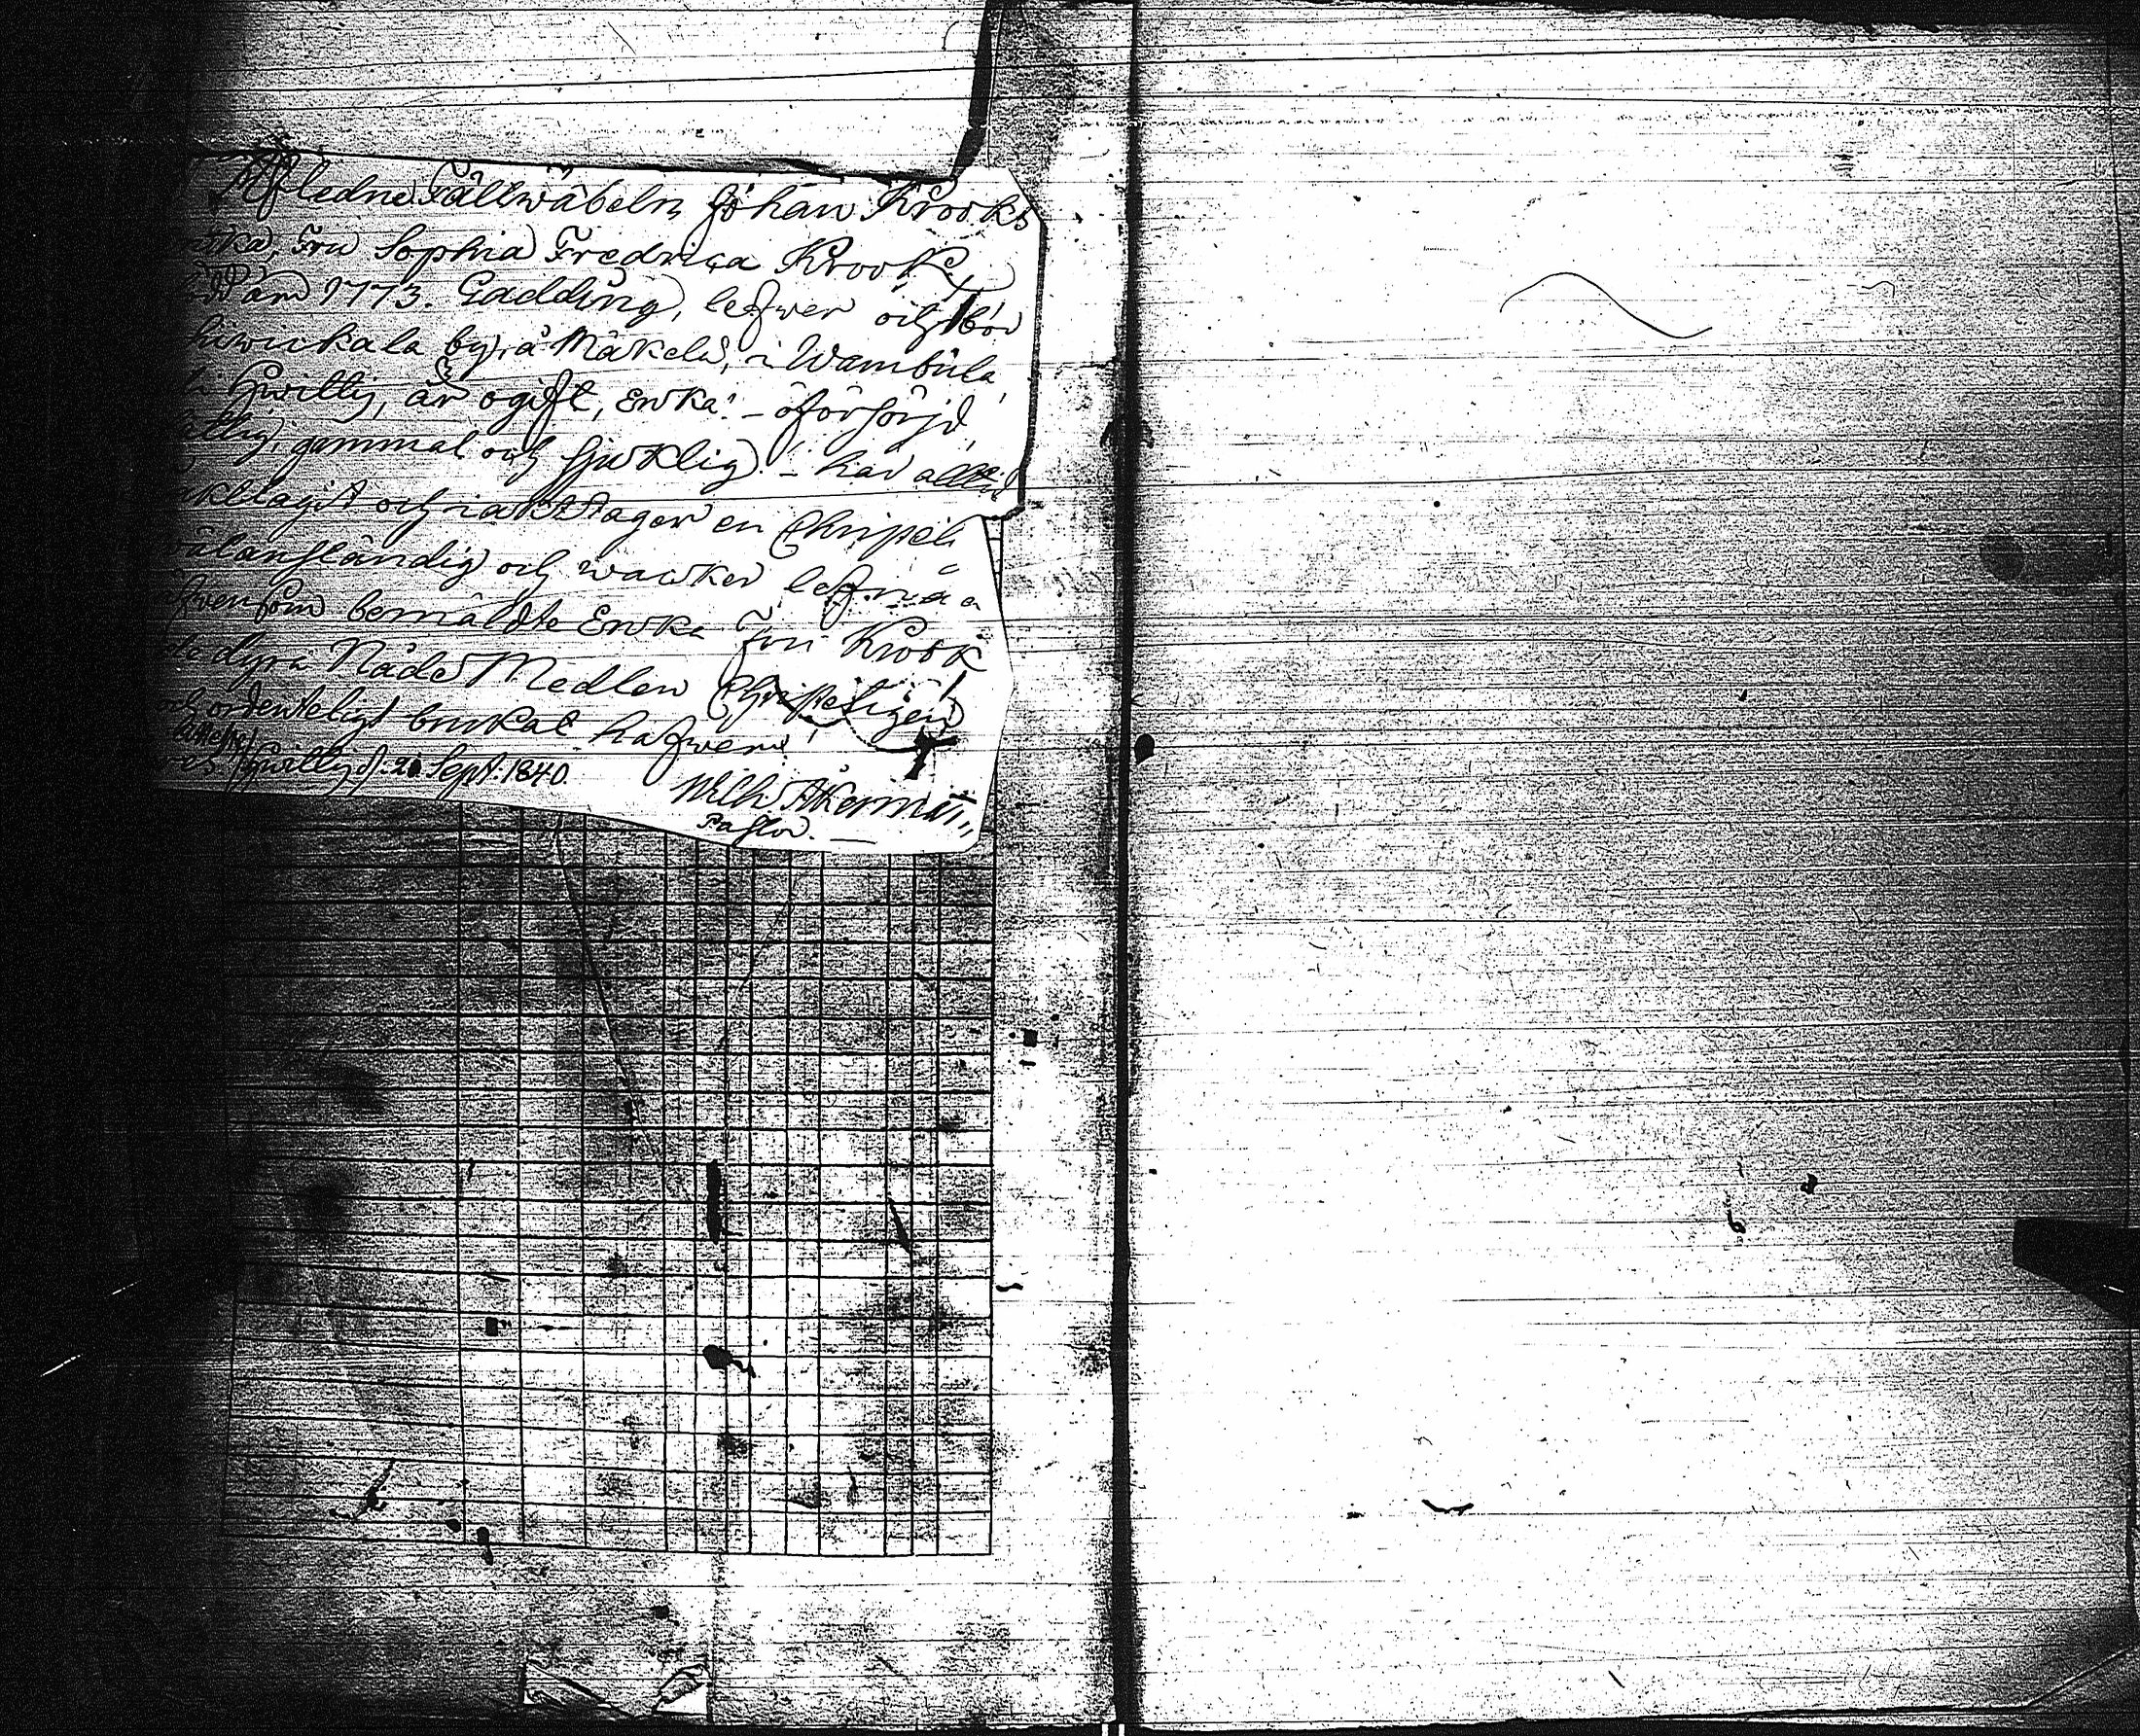 Afledne Fältwäbeln Johan Krooks
Enka, Fru Sophia Fredrica Krook,
född åm 1773. Gadding, lefwer och bor
by, å Mäkelä, i Wambula
är ogift, Enka! - oförsörjd,
gammal och sjuklig! - har alltid
iakttagit och iakttager en Christeli
wälanständig och wacker lefnad
äfwensom bemäldte Enka Fru Krook
de dyra Nåde Medlen Christeligen
och ordenteligt brukat hafwer!
d. Sept. 1840.
Wilh. Åkerman,
Pastor.